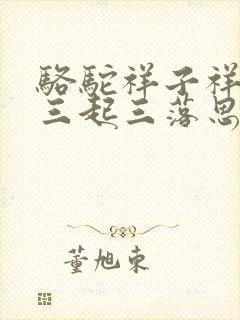 駱駝祥子祥
三起三落思
董旭東